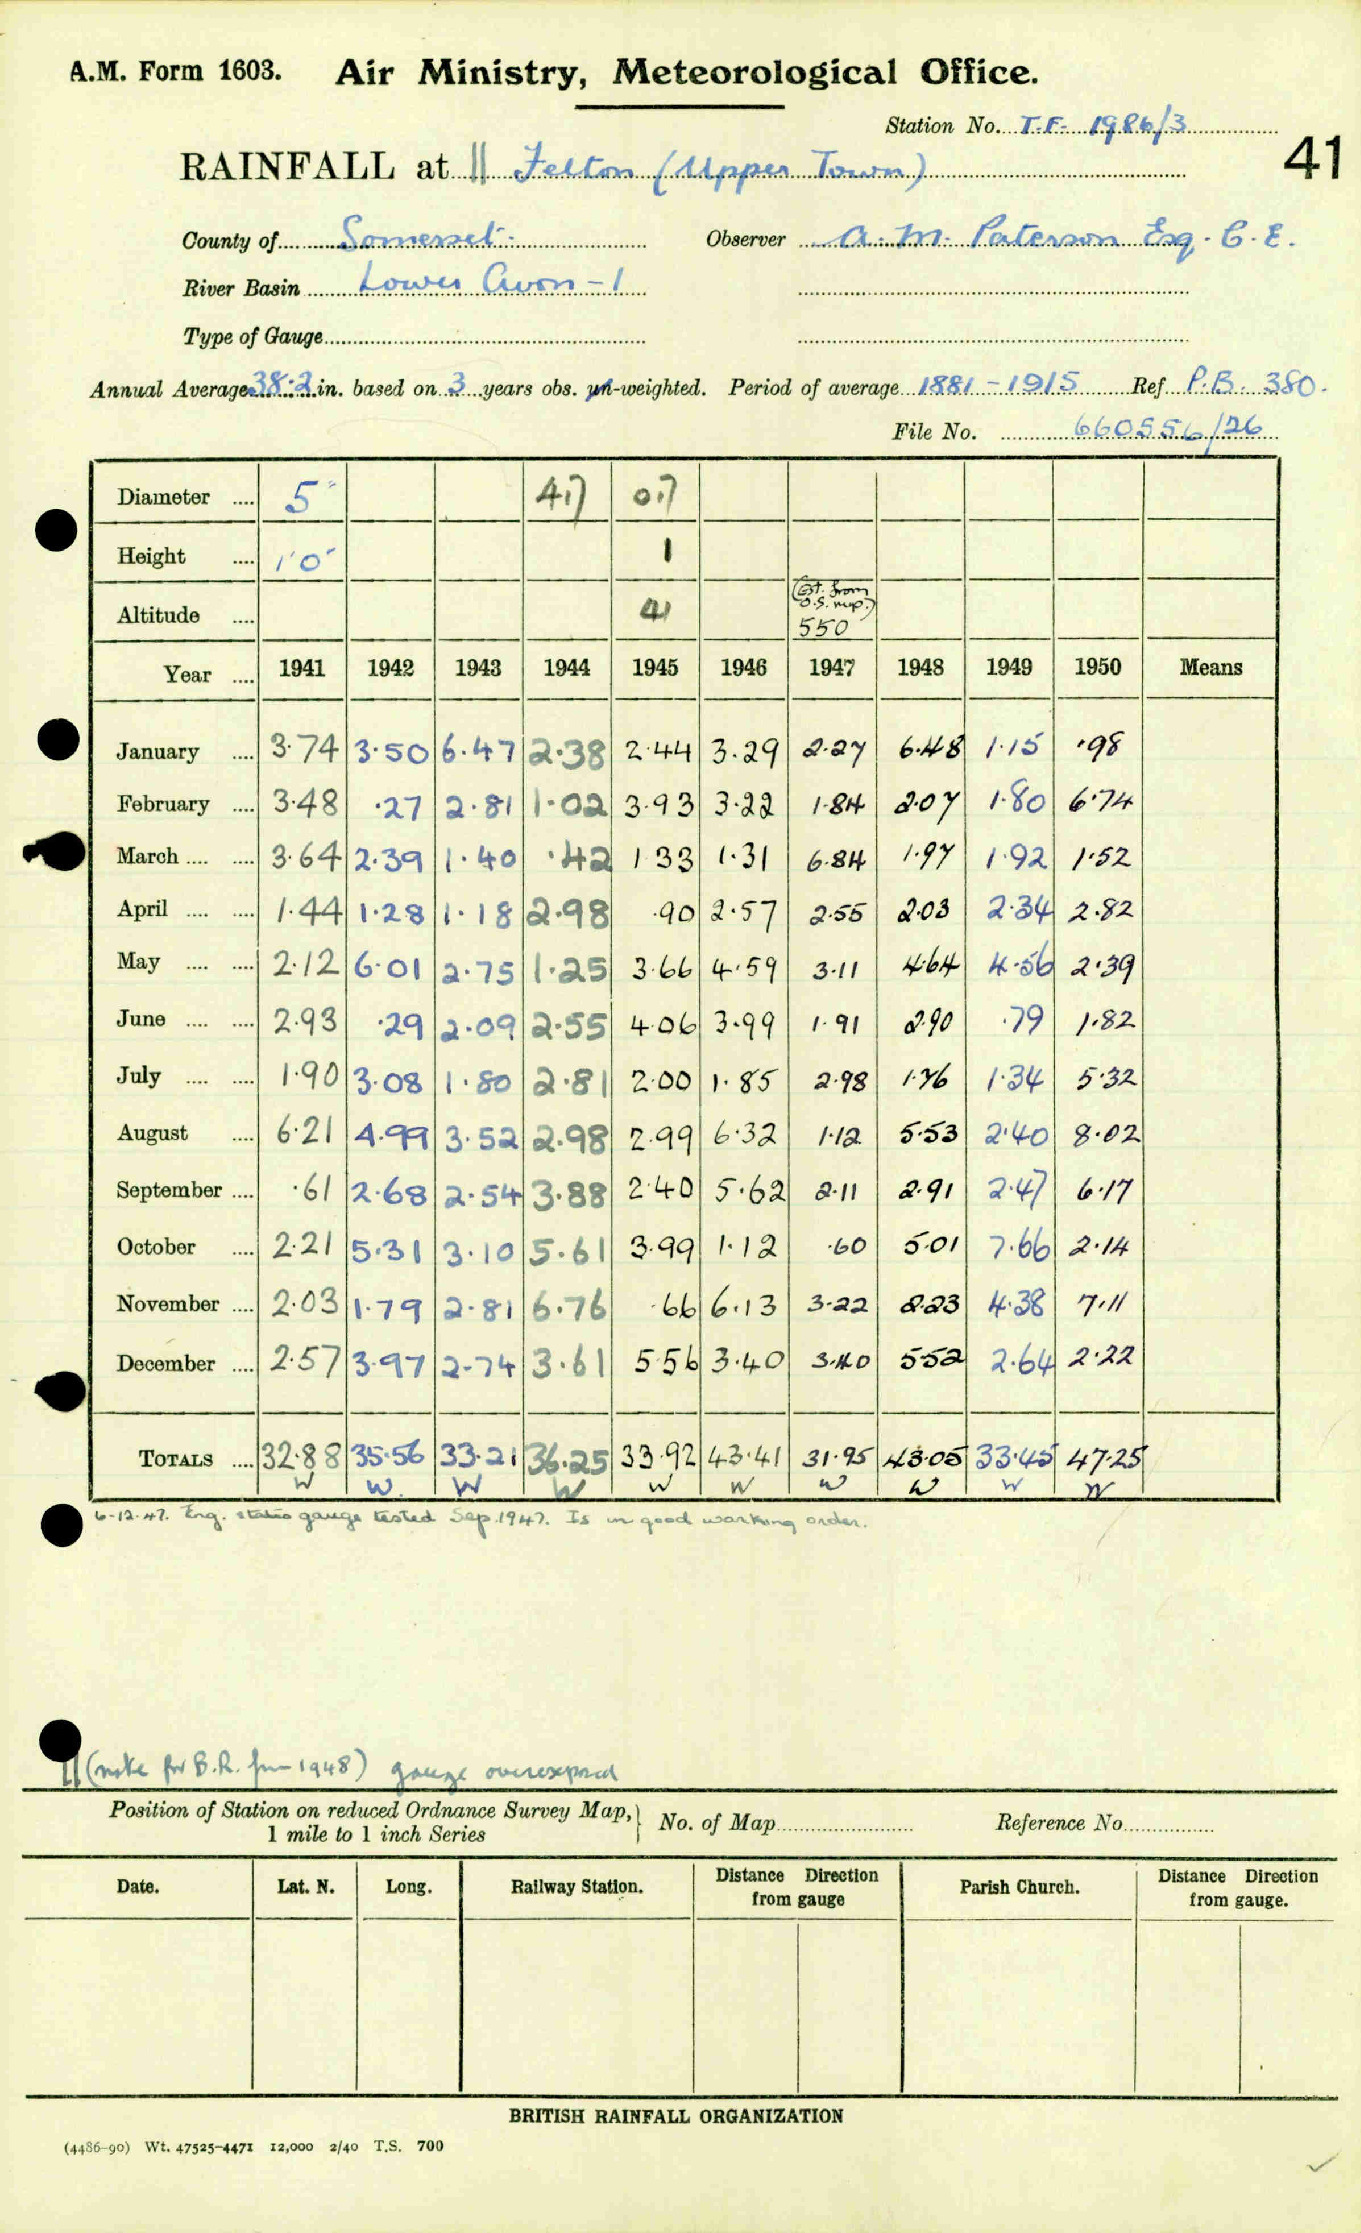 A.M. Form 1603. Air Ministry, Meteorological Office.
Station No. T.F. 1986/3
41
RAINFALL at || Felton (Upper Town)
County of Somerset. Observer A. M. Paterson Esq. C. E.
River Basin Lower Avon - 1
Type of Gauge
Annual Average 38.2 in. based on 3 years obs. un-weighted. Period of average 1881 - 1915 Ref. P.B. 380.
File No. 660556/26
Diameter .... 5" 4.7 0.7
Height .... 1'0" 1
Altitude .... 41 (Est. from O.S. map.) 550
Year .... 1941 1942 1943 1944 1945 1946 1947 1948 1949 1950 Means
January .... 3.74 3.50 6.47 2.38 2.44 3.29 2.27 6.48 1.15 .98
February .... 3.48 .27 2.81 1.02 3.93 3.22 1.84 2.07 1.80 6.74
March .... .... 3.64 2.39 1.40 .42 1.33 1.31 6.84 1.97 1.92 1.52
April .... .... 1.44 1.28 1.18 2.98 .90 2.57 2.55 2.03 2.34 2.82
May .... .... 2.12 6.01 2.75 1.25 3.66 4.59 3.11 4.64 4.56 2.39
June .... .... 2.93 .29 2.09 2.55 4.06 3.99 1.91 2.90 .79 1.82
July .... .... 1.90 3.08 1.80 2.81 2.00 1.85 2.98 1.76 1.34 5.32
August .... 6.21 4.99 3.52 2.98 2.99 6.32 1.12 5.53 2.40 8.02
September .... .61 2.68 2.54 3.88 2.40 5.62 2.11 2.91 2.47 6.17
October .... 2.21 5.31 3.10 5.61 3.99 1.12 .60 5.01 7.66 2.14
November .... 2.03 1.79 2.81 6.76 .66 6.13 3.22 2.23 4.38 7.11
December .... 2.57 3.97 2.74 3.61 5.56 3.40 3.40 5.52 2.64 2.22
TOTALS .... 32.88 35.56 33.21 36.25 33.92 43.41 31.95 43.05 33.45 47.25
W W. W W W W W W W W
6-12-47. Eng. states gauge tested Sep. 1947. Is in good working order.
|| (note for B.R. from 1948) gauge overexposed
Position of Station on reduced Ordnance Survey Map, } No. of Map Reference No.
1 mile to 1 inch Series
Date. Lat. N. Long. Railway Station. Distance Direction from gauge Parish Church. Distance Direction from gauge.
BRITISH RAINFALL ORGANIZATION
(4486-90) Wt. 47525-4471 12,000 2/40 T.S. 700